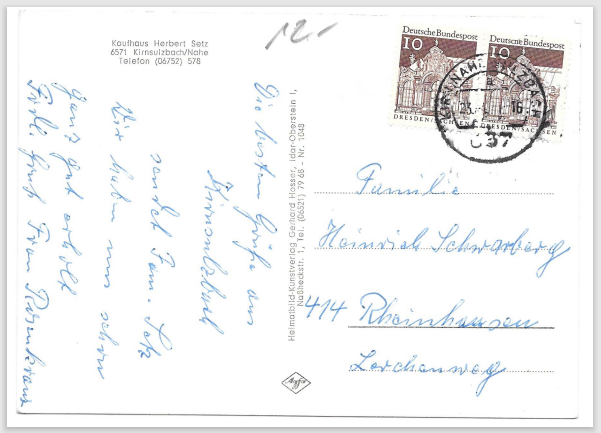 Kaufhaus Herbert Setz
6571 Kirnsulzbach/Nahe
Telefon (06752) 578
12.-
Deutsche Bundespost
10
DRESDEN/SACHSEN
Deutsche Bundespost
10
DRESDEN/SACHSEN
KIRNSULZBACH
23.
16
Die besten Grüße aus
Kirnsulzbach
sendet Fam. Setz
Wir haben uns schon
ganz gut erholt
Grüß Frau Rosenkranz
Heimatbild-Kunstverlag Gerhard Hosser, Idar-Oberstein 1,
Naßheckstr. 1, Tel. (06521) 79 68 - Nr. 1048
Agfa
Familie
Heinrich Schwarberg
414 Rheinhausen
Lerchenweg